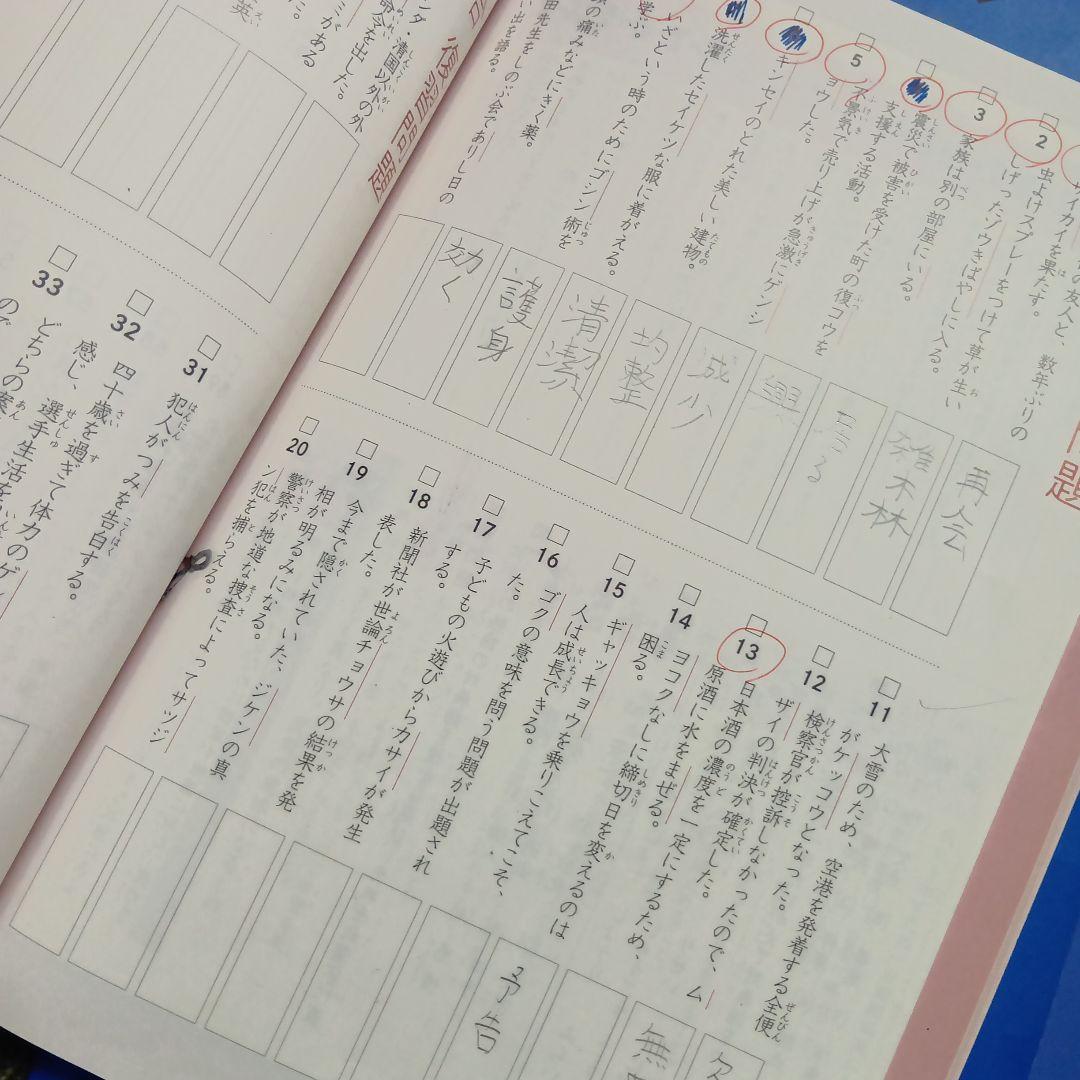 の友人と、数年ぶりの
サイカイを果たす。
2
虫よけスプレーをつけて草が生い
しげったゾウきばやしに入る。
3
家族は別の部屋にいる。
震災で被害を受けた町の復コウを
支援する活動。
5
不景気で売り上げが急激にゲンシ
ョウした。
キンセイのとれた美しい建物。
洗濯したセイケツな服に着がえる。
いざという時のためにゴシン術を
学ぶ。
の痛みなどにきく薬。
田先生をしのぶ会でありし日の
い出を語る。
再会
雑木林
居る
興
減少
均整
清潔
護身
効く
11
大雪のため、空港を発着する全便
がケッコウとなった。
12
検察官が控訴しなかったので、ム
ザイの判決が確定した。
13
日本酒の濃度を一定にするため、
原酒に水をまぜる。
14
ヨコクなしに締切日を変えるのは
困る。
15
ギャッキョウを乗りこえてこそ、
人は成長できる。
16
ゴクの意味を問う問題が出題され
た。
17
子どもの火遊びからカサイが発生
する。
18
新聞社が世論チョウサの結果を発
表した。
19
今まで隠されていた、ジケンの真
相が明るみになる。
20
警察が地道な捜査によってサツジ
ン犯を捕らえる。
無
予告
題
復習問題
清国以外の外
命令を出した。
がある
英
31
犯人がつみを告白する。
32
四十歳を過ぎて体力のゲン
感じ、選手生活を
33
どちらの案
ので